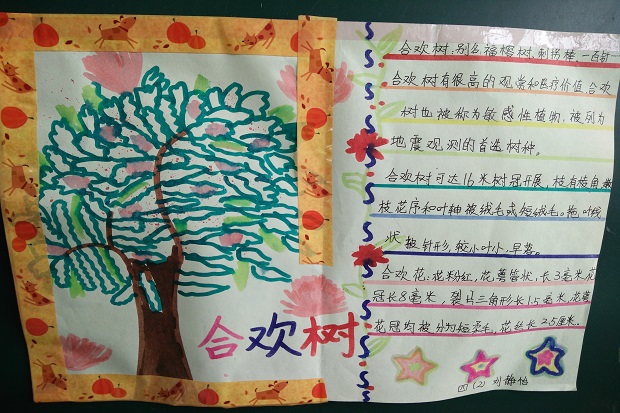 合欢树
合欢树:别名福榕树、刺拐棒、一百针
合欢树有很高的观赏和医疗价值合欢
树也被称为敏感性植物、被列为
地震观测的首选树种。
合欢树可达16米树冠开展,枝有棱角、嫩
枝花序和叶轴被绒毛或短绒毛。托叶线
状披针形,较小叶小,早落。
合欢花:花粉红,花萼管状,长3毫米,花
冠长8毫米,裂片三角形长1.5毫米,花萼
花冠均被外为短柔毛,花丝长2.5厘米.
四(2)刘